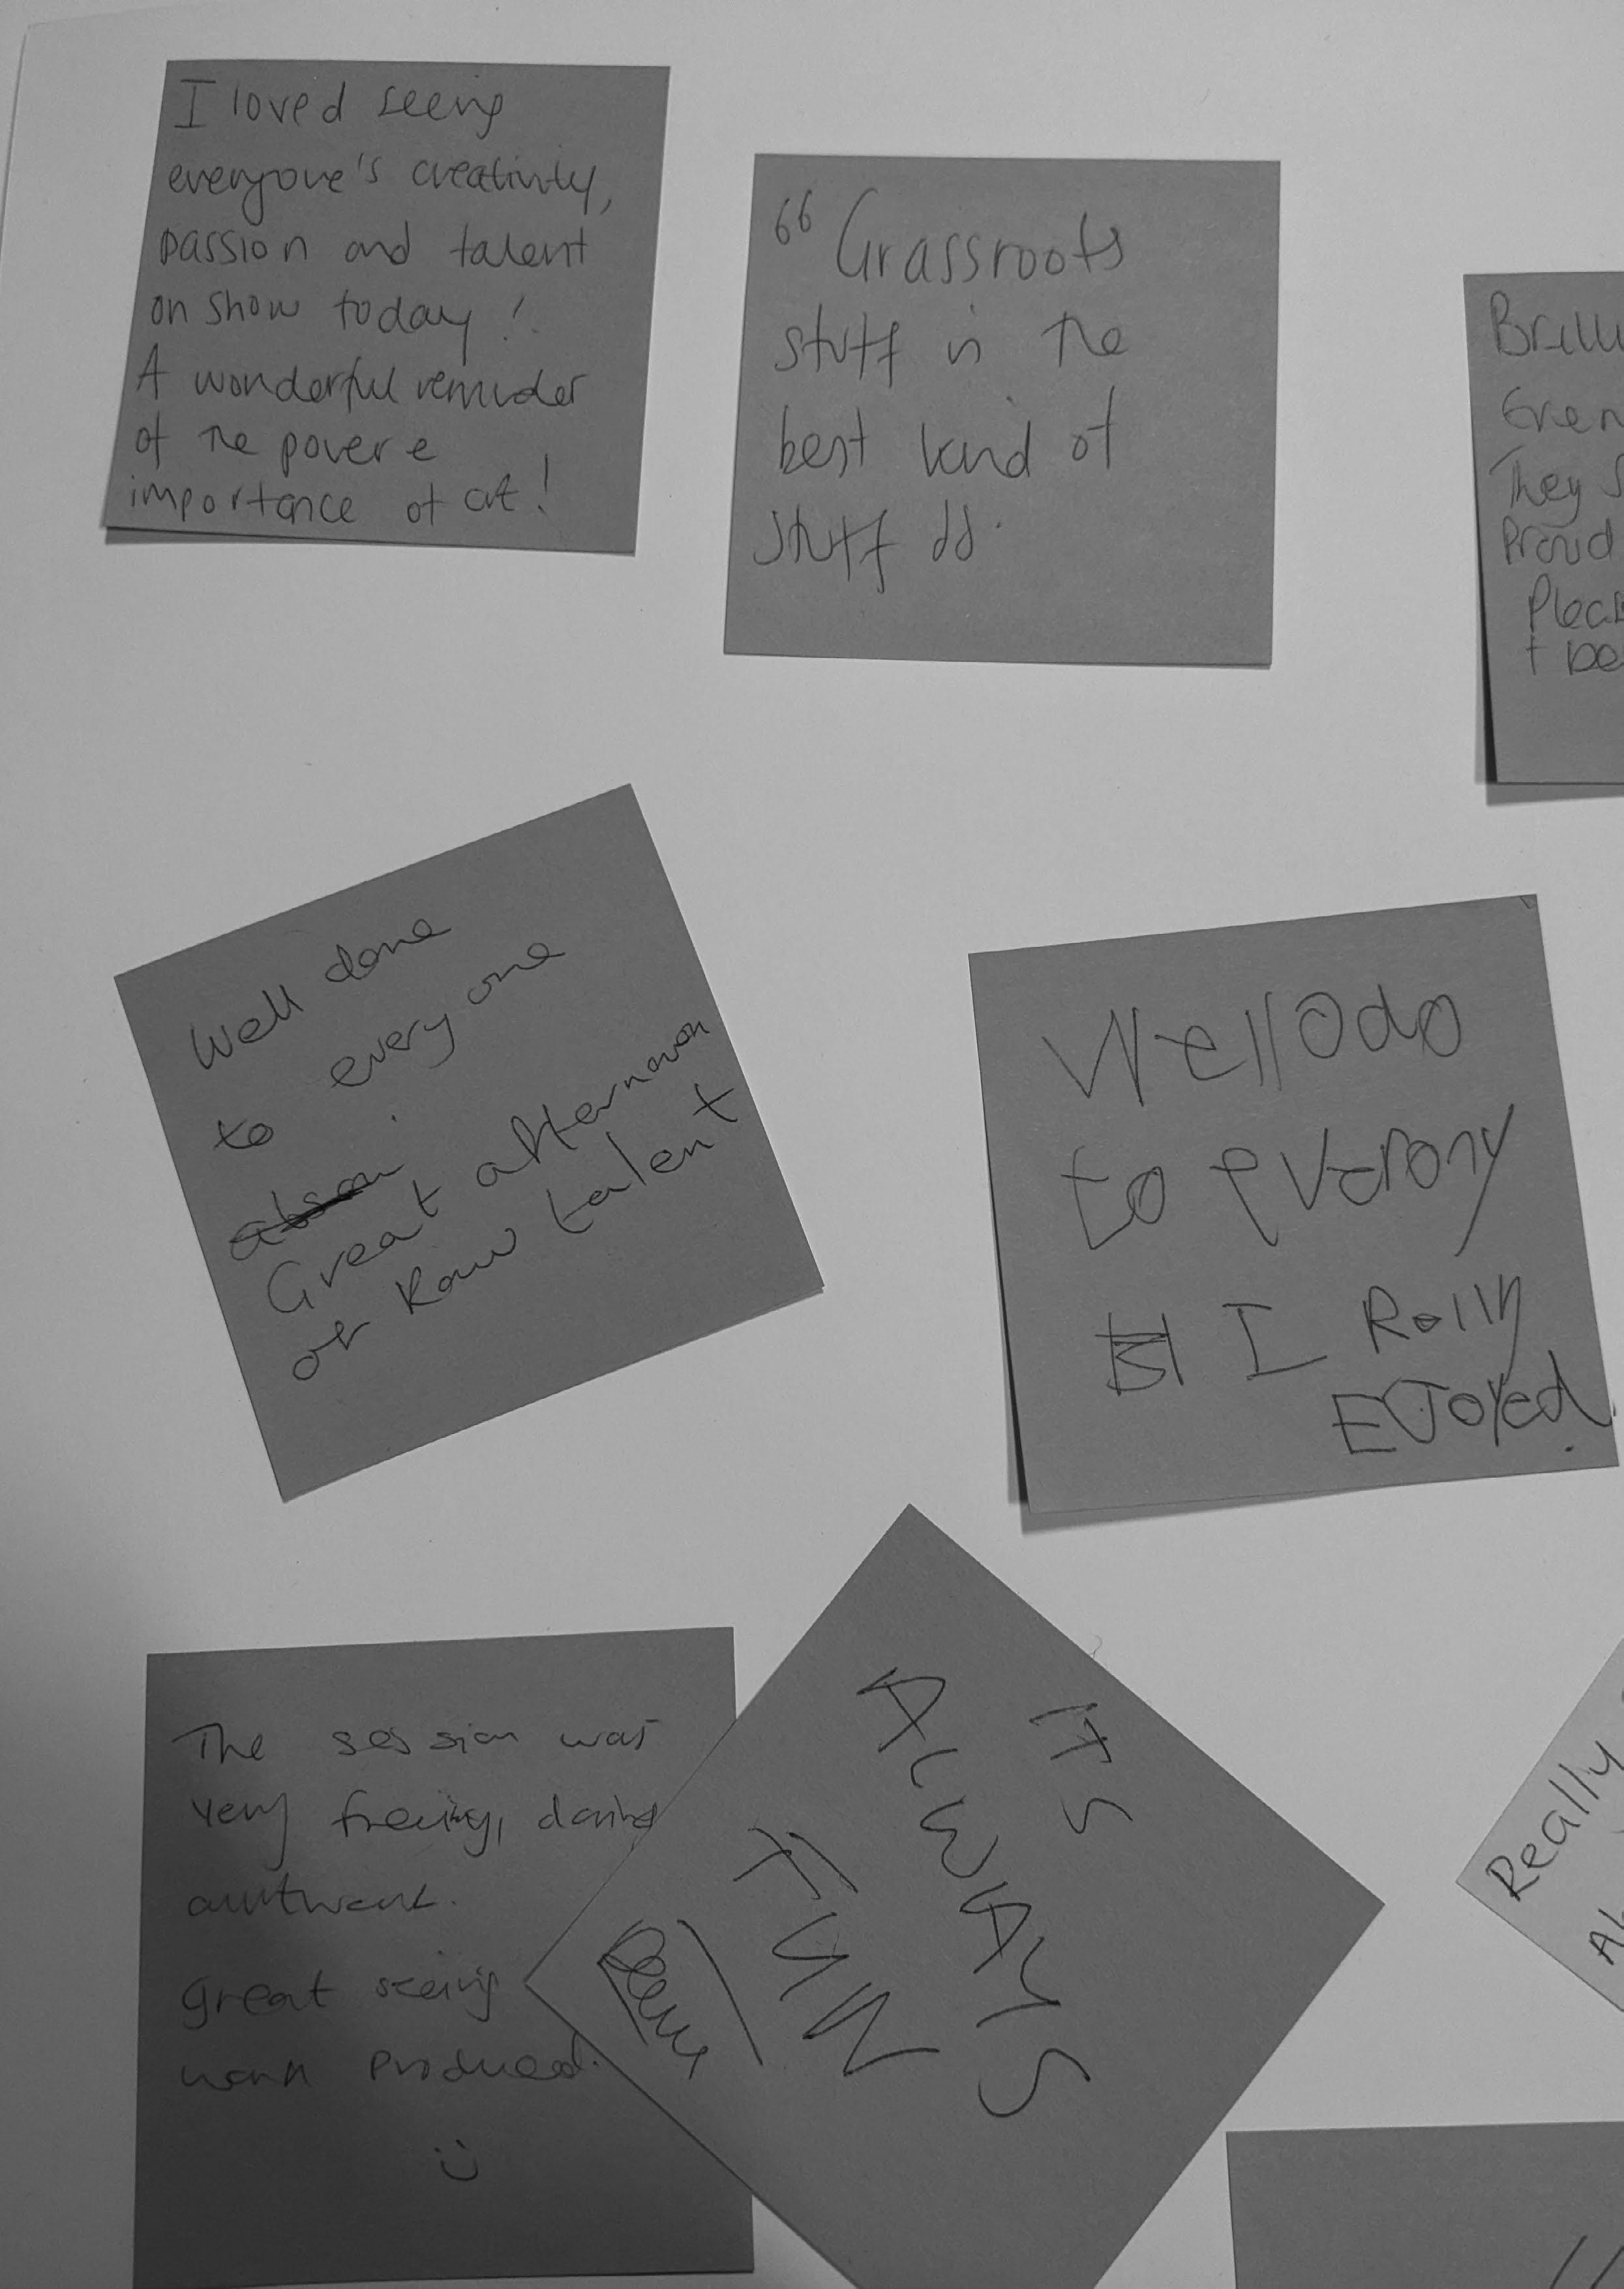 I loved seeing
everyone's creativity,
passion and talent
on show today!
A wonderful reminder
of the power &
importance of art!
"Grassroots
stuff is the
best kind of
stuff".
Even
They
Proud
Well done
to every one
Great afternoon
of Raw talent
Well Odo
to everony
I Rolly
EJoyed.
The session was
very freeing, doing
great seeing
work produced.
ITS
ALWAYS
FUN
Really